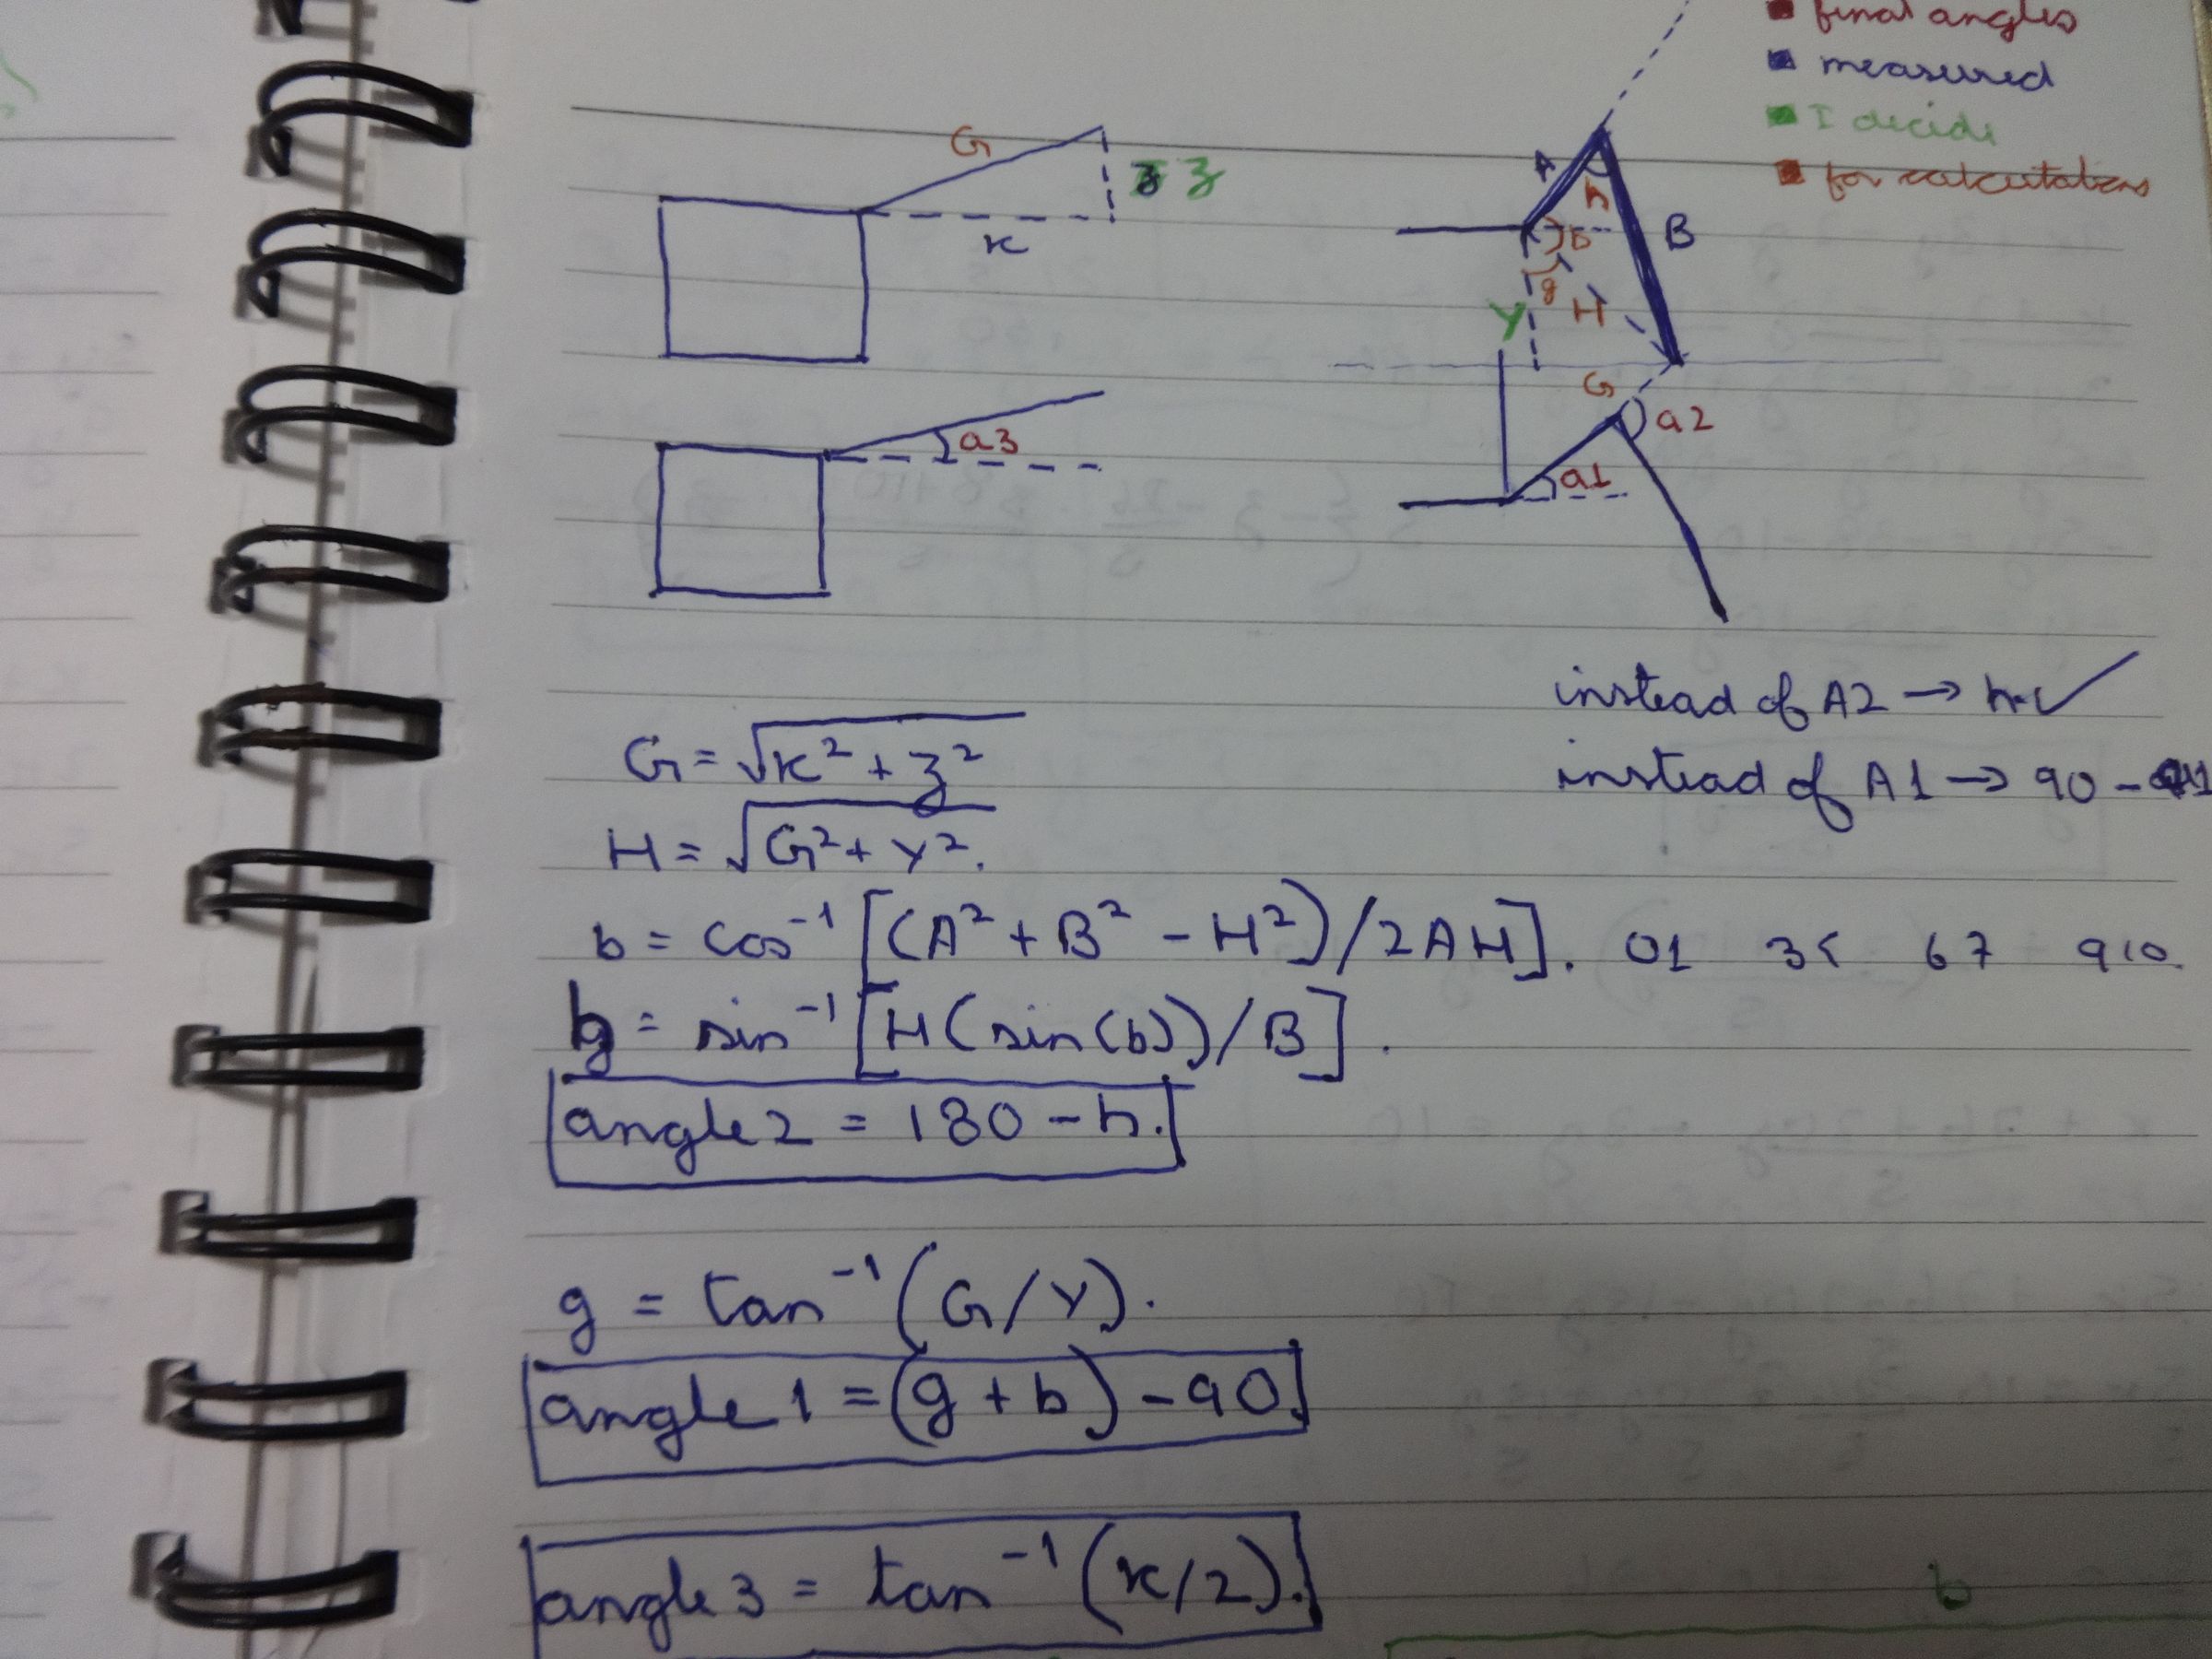 final angles
measured
I decide
for calculations
G
z
x
A
h
b
B
g
H
Y
G
a3
a2
a1
instead of A2 → h
instead of A1 → 90 -
G = √x² + z²
H = √G² + Y².
b = cos⁻¹ [(A² + B² - H²)/2AH]. 01 35 67 910.
= sin⁻¹ [H(sin(b))/B].
angle 2 = 180 - h.
g = tan⁻¹ (G/Y).
angle 1 = (g + b) - 90.
angle 3 = tan⁻¹ (x/2).
b